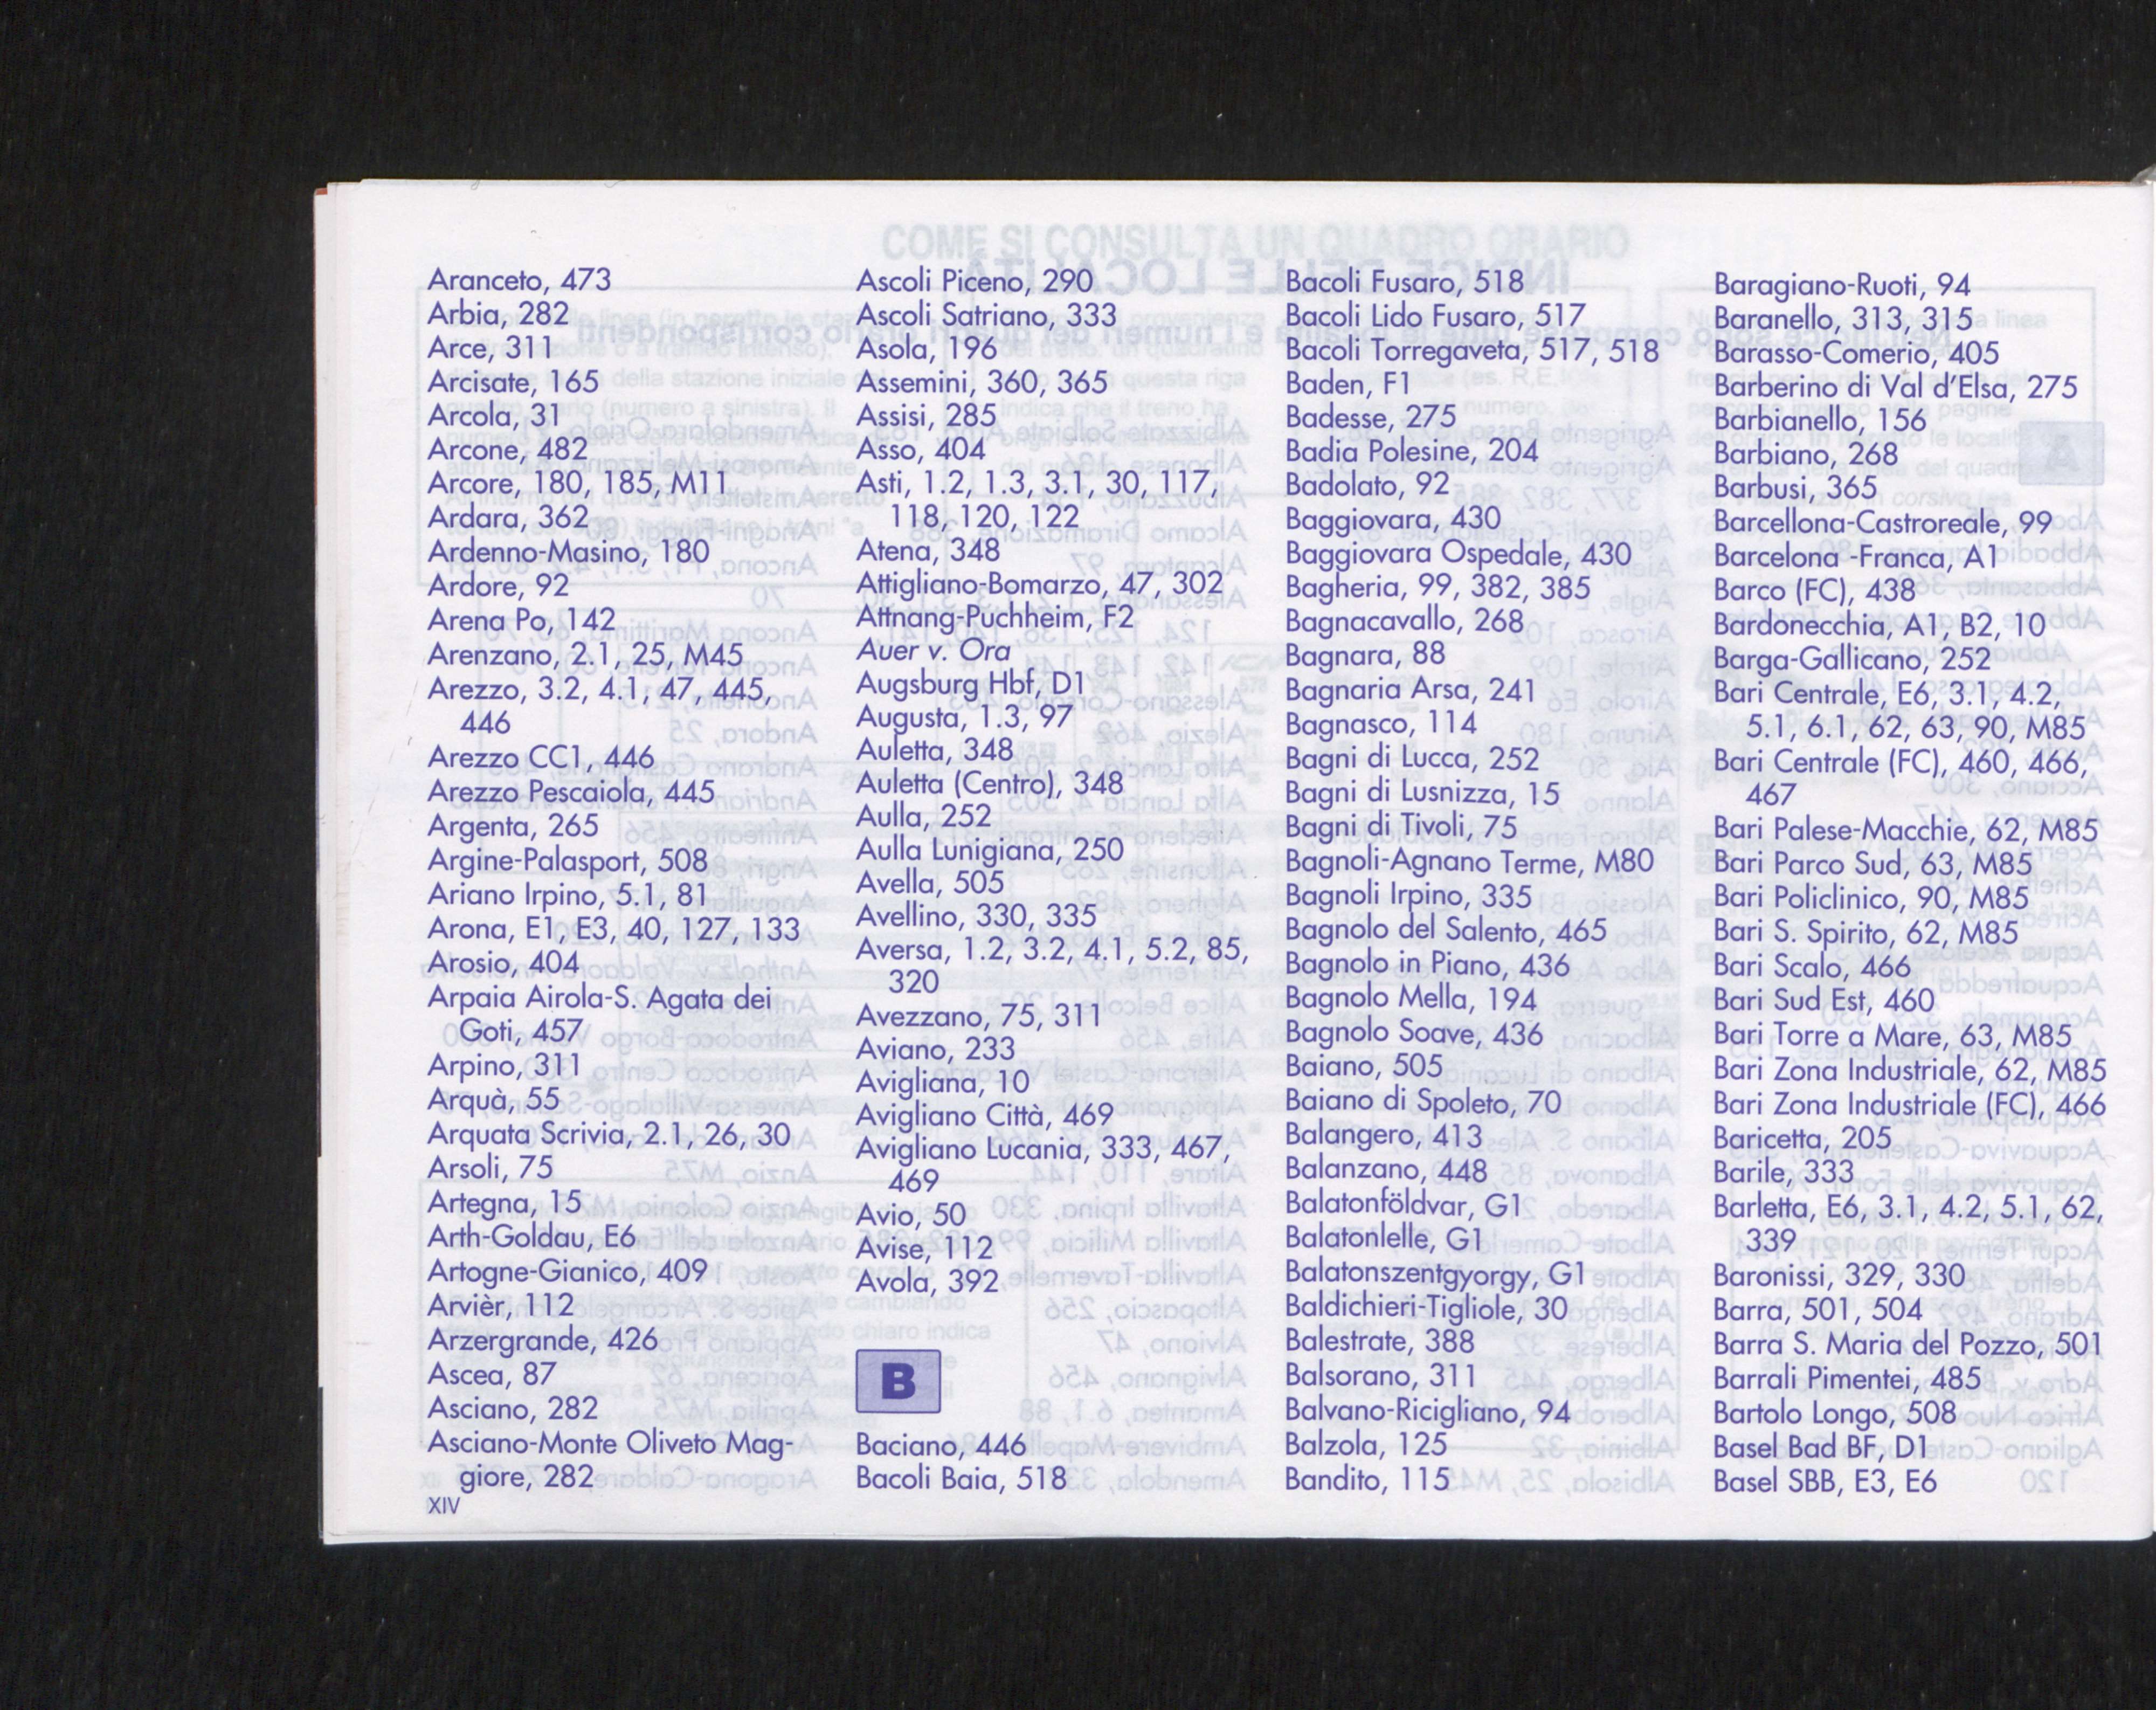 Aranceto, 473
Arbia, 282
Arce, 311
Arcisate, 165
Arcola, 31
Arcone, 482
Arcore, 180, 185, M11
Ardara, 362
Ardenno-Masino, 180
Ardore, 92
Arena Po, 142
Arenzano, 2.1, 25, M45
Arezzo, 3.2, 4.1, 47, 445,
446
Arezzo CC1, 446
Arezzo Pescaiola, 445
Argenta, 265
Argine-Palasport, 508
Ariano Irpino, 5.1, 81
Arona, E1, E3, 40, 127, 133
Arosio, 404
Arpaia Airola-S. Agata dei
Goti, 457
Arpino, 311
Arquà, 55
Arquata Scrivia, 2.1, 26, 30
Arsoli, 75
Artegna, 15
Arth-Goldau, E6
Artogne-Gianico, 409
Arvièr, 112
Arzergrande, 426
Ascea, 87
Asciano, 282
Asciano-Monte Oliveto Mag-
giore, 282
XIV
Ascoli Piceno, 290
Ascoli Satriano, 333
Asola, 196
Assemini, 360, 365
Assisi, 285
Asso, 404
Asti, 1.2, 1.3, 3.1, 30, 117,
118, 120, 122
Atena, 348
Attigliano-Bomarzo, 47, 302
Attnang-Puchheim, F2
Auer v. Ora
Augsburg Hbf, D1
Augusta, 1.3, 97
Auletta, 348
Auletta (Centro), 348
Aulla, 252
Aulla Lunigiana, 250
Avella, 505
Avellino, 330, 335
Aversa, 1.2, 3.2, 4.1, 5.2, 85,
320
Avezzano, 75, 311
Aviano, 233
Avigliana, 10
Avigliano Città, 469
Avigliano Lucania, 333, 467,
469
Avio, 50
Avise, 112
Avola, 392
B
Baciano, 446
Bacoli Baia, 518
Bacoli Fusaro, 518
Bacoli Lido Fusaro, 517
Bacoli Torregaveta, 517, 518
Baden, F1
Badesse, 275
Badia Polesine, 204
Badolato, 92
Baggiovara, 430
Baggiovara Ospedale, 430
Bagheria, 99, 382, 385
Bagnacavallo, 268
Bagnara, 88
Bagnaria Arsa, 241
Bagnasco, 114
Bagni di Lucca, 252
Bagni di Lusnizza, 15
Bagni di Tivoli, 75
Bagnoli-Agnano Terme, M80
Bagnoli Irpino, 335
Bagnolo del Salento, 465
Bagnolo in Piano, 436
Bagnolo Mella, 194
Bagnolo Soave, 436
Baiano, 505
Baiano di Spoleto, 70
Balangero, 413
Balanzano, 448
Balatonföldvar, G1
Balatonlelle, G1
Balatonszentgyorgy, G1
Baldichieri-Tigliole, 30
Balestrate, 388
Balsorano, 311
Balvano-Ricigliano, 94
Balzola, 125
Bandito, 115
Baragiano-Ruoti, 94
Baranello, 313, 315
Barasso-Comerio, 405
Barberino di Val d'Elsa, 275
Barbianello, 156
Barbiano, 268
Barbusi, 365
Barcellona-Castroreale, 99
Barcelona -Franca, A1
Barco (FC), 438
Bardonecchia, A1, B2, 10
Barga-Gallicano, 252
Bari Centrale, E6, 3.1, 4.2,
5.1, 6.1, 62, 63, 90, M85
Bari Centrale (FC), 460, 466,
467
Bari Palese-Macchie, 62, M85
Bari Parco Sud, 63, M85
Bari Policlinico, 90, M85
Bari S. Spirito, 62, M85
Bari Scalo, 466
Bari Sud Est, 460
Bari Torre a Mare, 63, M85
Bari Zona Industriale, 62, M85
Bari Zona Industriale (FC), 466
Baricetta, 205
Barile, 333
Barletta, E6, 3.1, 4.2, 5.1, 62,
339
Baronissi, 329, 330
Barra, 501, 504
Barra S. Maria del Pozzo, 501
Barrali Pimentei, 485
Bartolo Longo, 508
Basel Bad BF, D1
Basel SBB, E3, E6